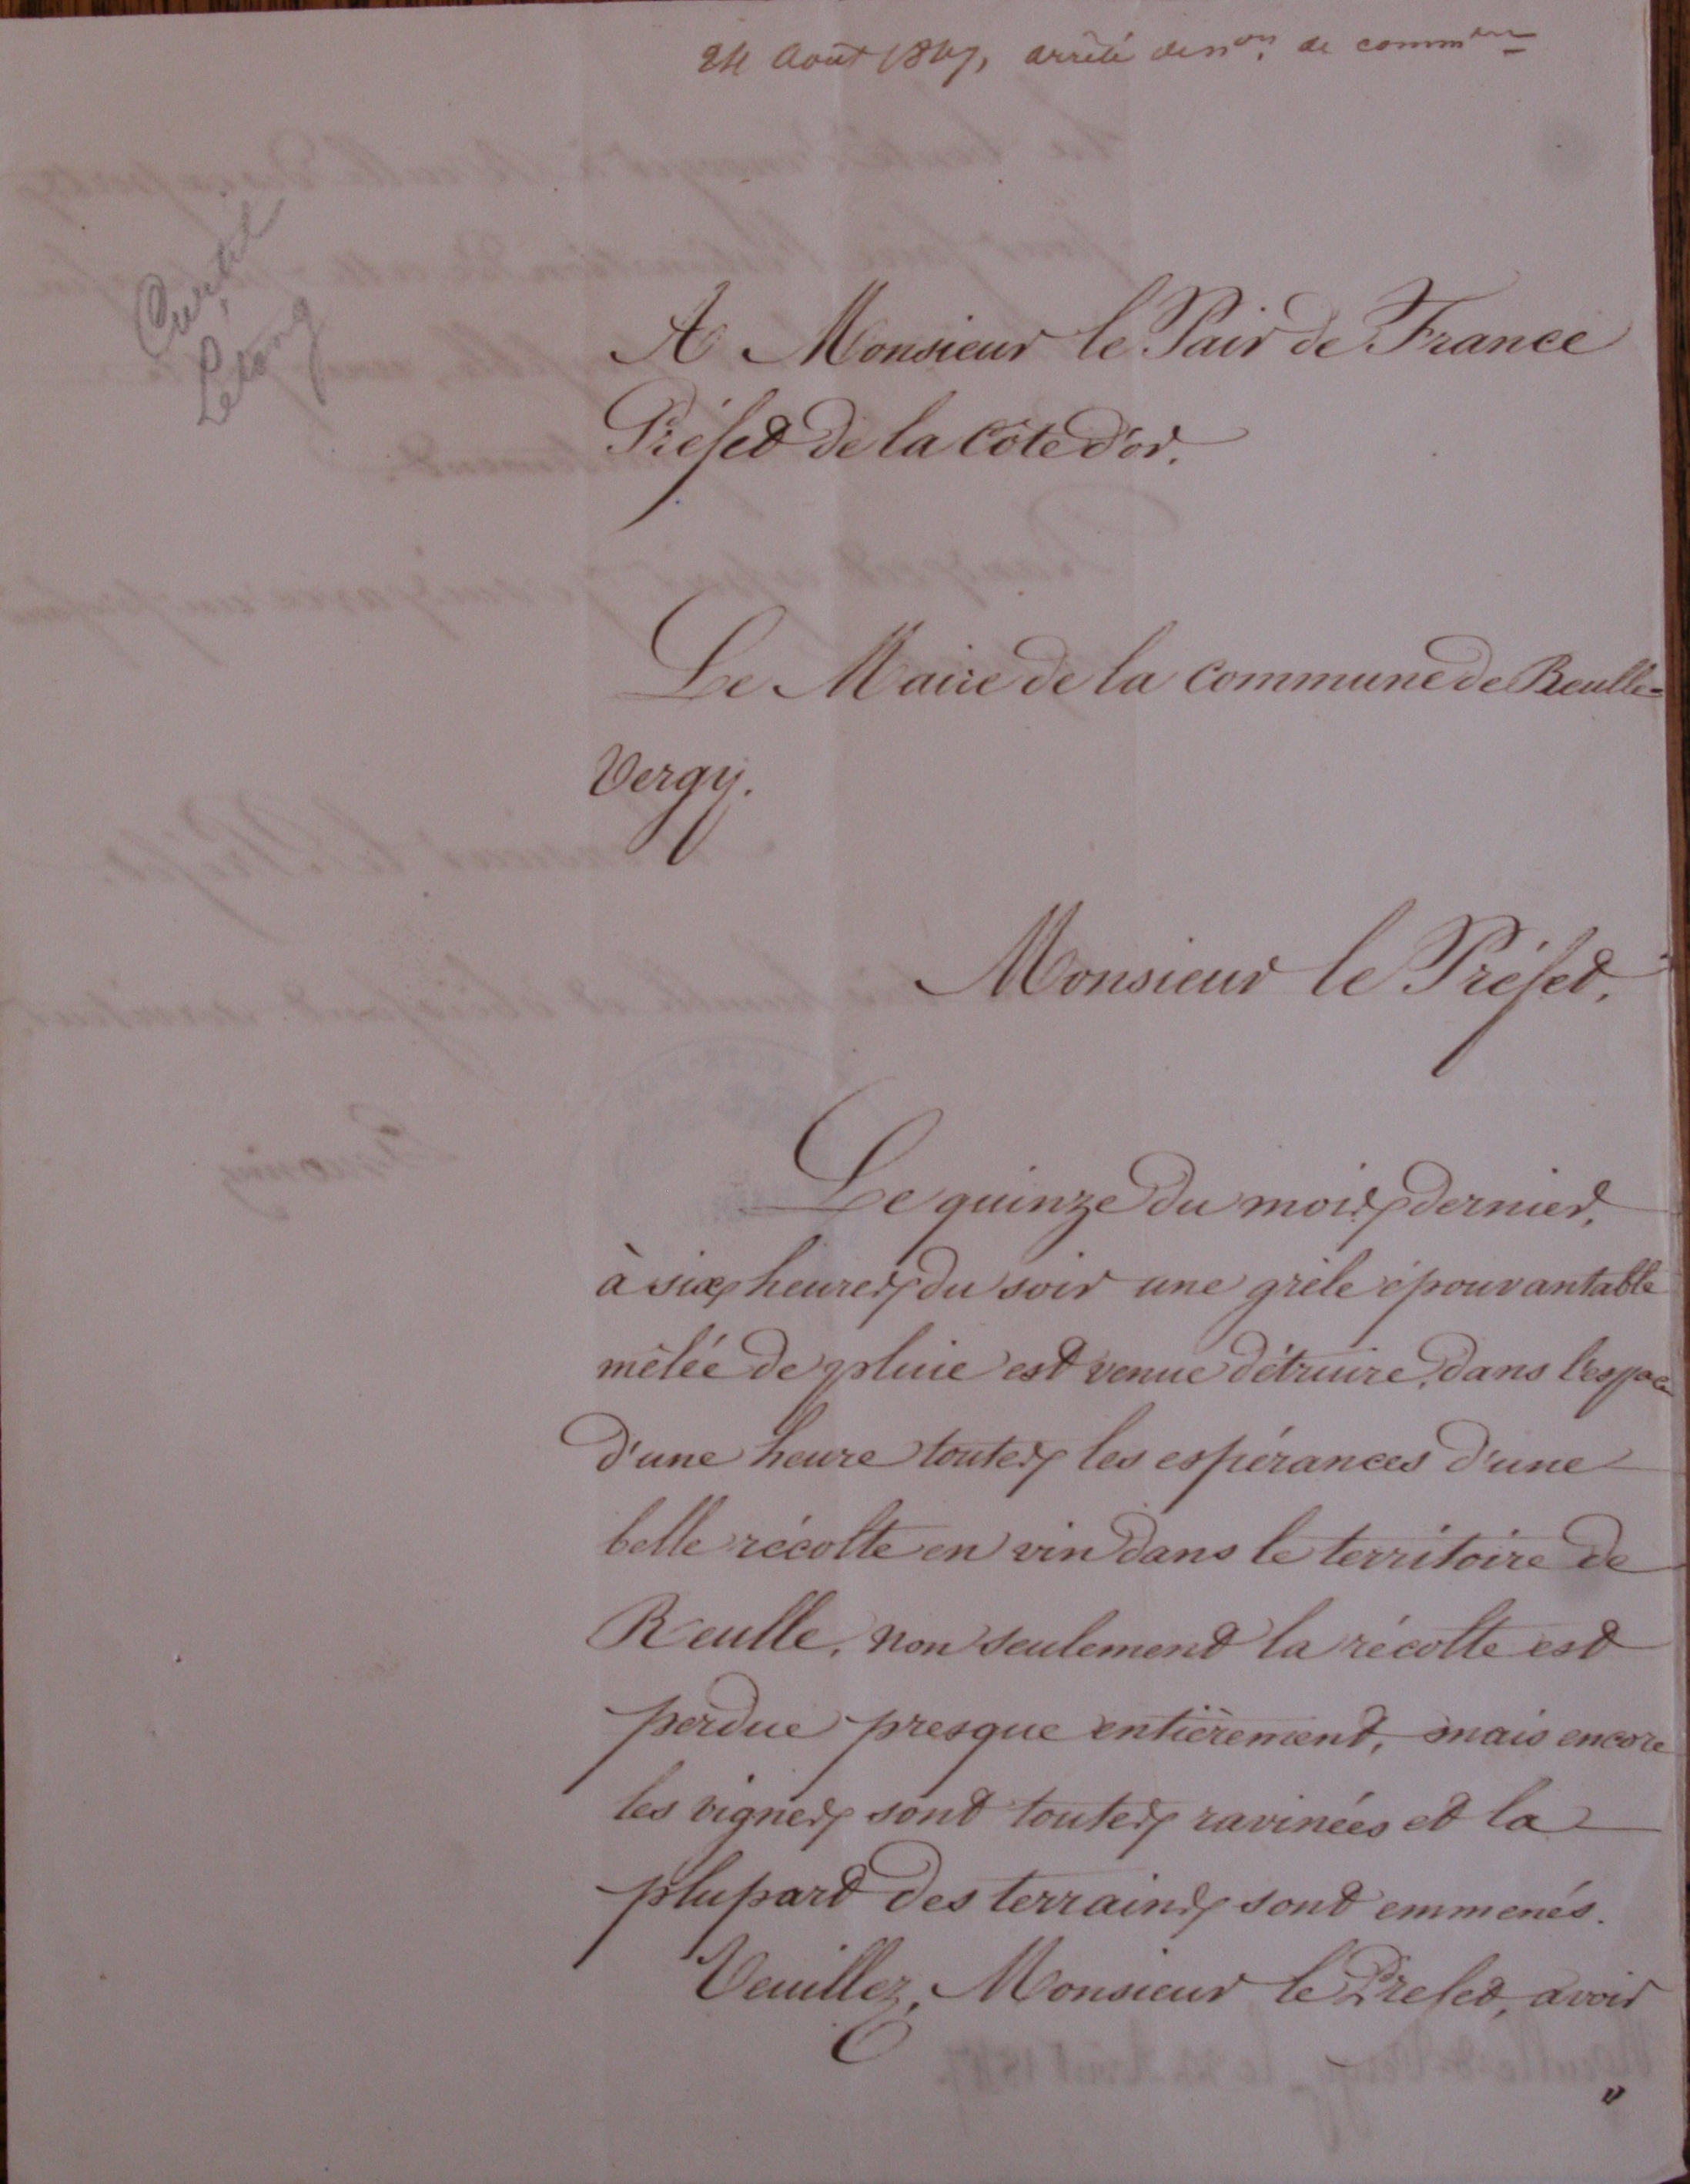 24 Août 1847, arrêté de n^on. de comm^res
Curtil
Lelong
A Monsieur le Pair de France
Préfet de la Côte d'or.
Le Maire de la commune de Reulle-
Vergy.
Monsieur le Préfet,
Le quinze du mois dernier,
à six heures du soir une grèle épouvantable
mêlée de pluie est venue détruire, dans l'espace
d'une heure toutes les espérances d'une
belle récolte en vin dans le territoire de
Reulle, non seulement la récolte est
perdue presque entièrement, mais encore
les vignes sont toutes ravinées et la
plupart des terrains sont emmenés.
Veuillez, Monsieur le Préfet, avoir
"